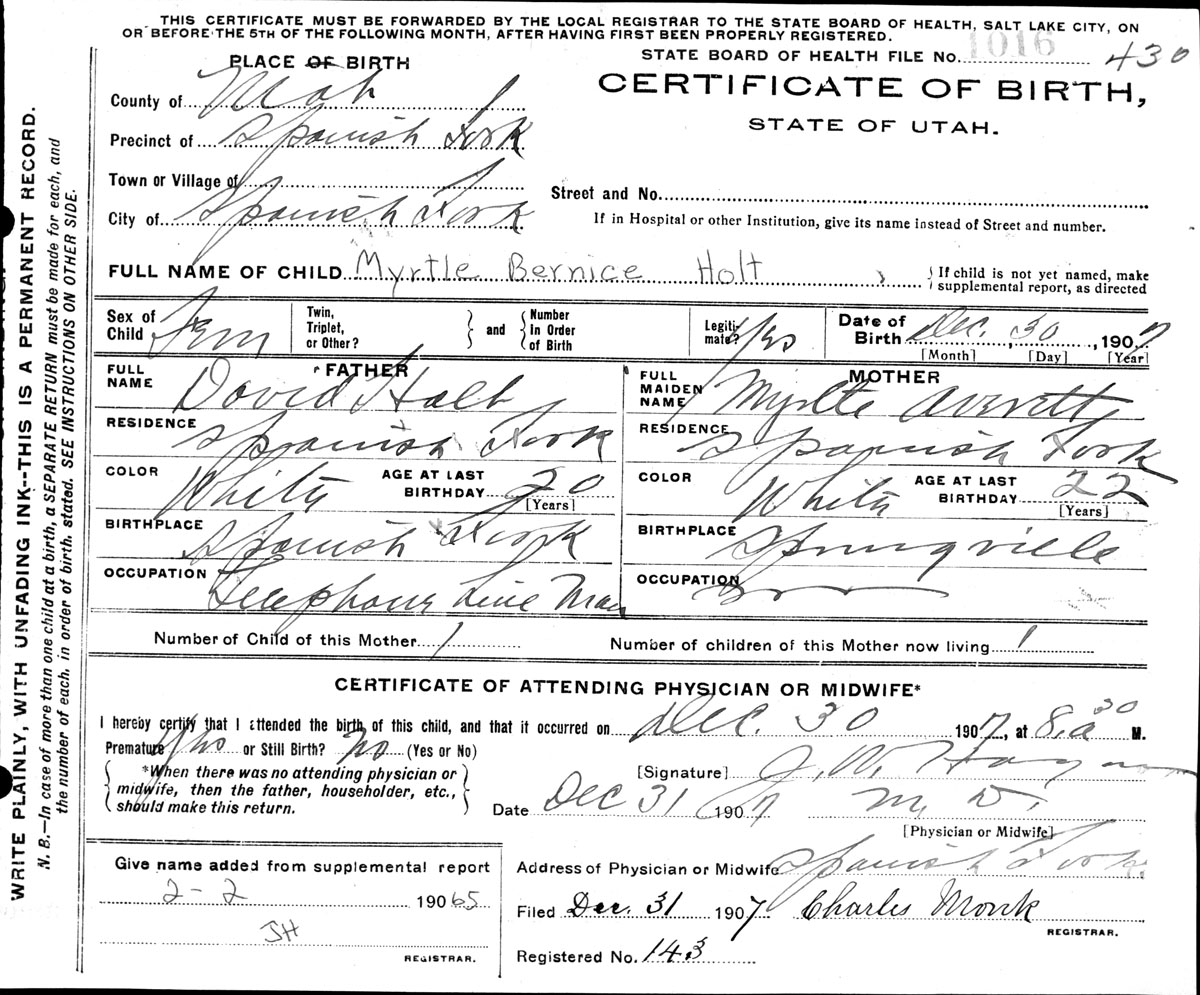 THIS CERTIFICATE MUST BE FORWARDED BY THE LOCAL REGISTRAR TO THE STATE BOARD OF HEALTH, SALT LAKE CITY, ON
OR BEFORE THE 5TH OF THE FOLLOWING MONTH, AFTER HAVING FIRST BEEN PROPERLY REGISTERED.
STATE BOARD OF HEALTH FILE No. 1016 430
PLACE OF BIRTH
CERTIFICATE OF BIRTH,
STATE OF UTAH.
County of Utah
Precinct of Spanish Fork
Town or Village of
City of Spanish Fork
Street and No.
If in Hospital or other Institution, give its name instead of Street and number.
FULL NAME OF CHILD Myrtle Bernice Holt
If child is not yet named, make
supplemental report, as directed
Sex of Child Fem
Twin, Triplet, or Other?
and
Number In Order of Birth
Legiti- mate? Yes
Date of Birth Dec. 30, 1907
[Month] [Day] [Year]
FATHER
FULL NAME David Holt
RESIDENCE Spanish Fork
COLOR White AGE AT LAST BIRTHDAY 20
[Years]
BIRTHPLACE Spanish Fork
OCCUPATION Telephone Line Man
MOTHER
FULL MAIDEN NAME Myrlte Averett
RESIDENCE Spanish Fork
COLOR White AGE AT LAST BIRTHDAY 22
[Years]
BIRTHPLACE Springville
OCCUPATION
Number of Child of this Mother 1
Number of children of this Mother now living 1
CERTIFICATE OF ATTENDING PHYSICIAN OR MIDWIFE*
I hereby certify that I attended the birth of this child, and that it occurred on Dec. 30 1907, at 8.30 a M.
Premature Yes or Still Birth? no (Yes or No)
*When there was no attending physician or
midwife, then the father, householder, etc.,
should make this return.
[Signature] J. W.
Date Dec 31 1907 M. D.
[Physician or Midwife]
Address of Physician or Midwife Spanish Fork.
Filed Dec. 31 1907 Charles Monk
REGISTRAR.
Registered No. 143
Give name added from supplemental report
2-2 19065
JH
REGISTRAR.
WRITE PLAINLY, WITH UNFADING INK--THIS IS A PERMANENT RECORD.
N. B.—In case of more than one child at a birth, a SEPARATE RETURN must be made for each, and
the number of each, in order of birth, stated. SEE INSTRUCTIONS ON OTHER SIDE.